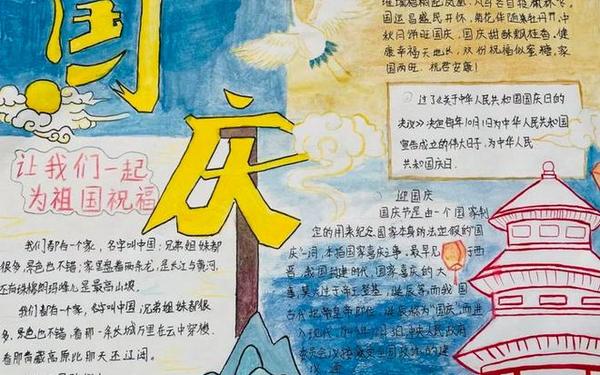 国
庆
让我们一起
为祖国祝福
我们都有一个家，名字叫中国；兄弟姐妹都
很多，景色也不错；家里盘着两条龙，是长江与黄河，
还有珠穆朗玛峰儿是最高山坡。
我们都有一个家，名字叫中国，兄弟姐妹都很
多，景色也不错，看那一条长城万里在云中穿梭，
看那青藏高原比那天还辽阔。
国运昌盛民开怀，菊花伴随
秋日同祈国庆，国庆甜酥飘桂香，健
康幸福天地长，双份祝福似蜜糖，家
国两旺，祝君安康！
过了《关于中华人民共和国国庆日的
决议》决定每年10月1日为中华人民共和国
宣告成立的伟大日子，为中华人民
共和国国庆日．
迎国庆
国庆节是由一个国家制
定的用来纪念国家本身的法定假的“国
庆”一词，本指国家喜庆之事，最早见于西
晋，我国封建时代，国家喜庆的大
事，莫大过于帝王登基、诞辰等，而我国
古代把皇帝即位、诞辰称为“国庆”，而进
入现代